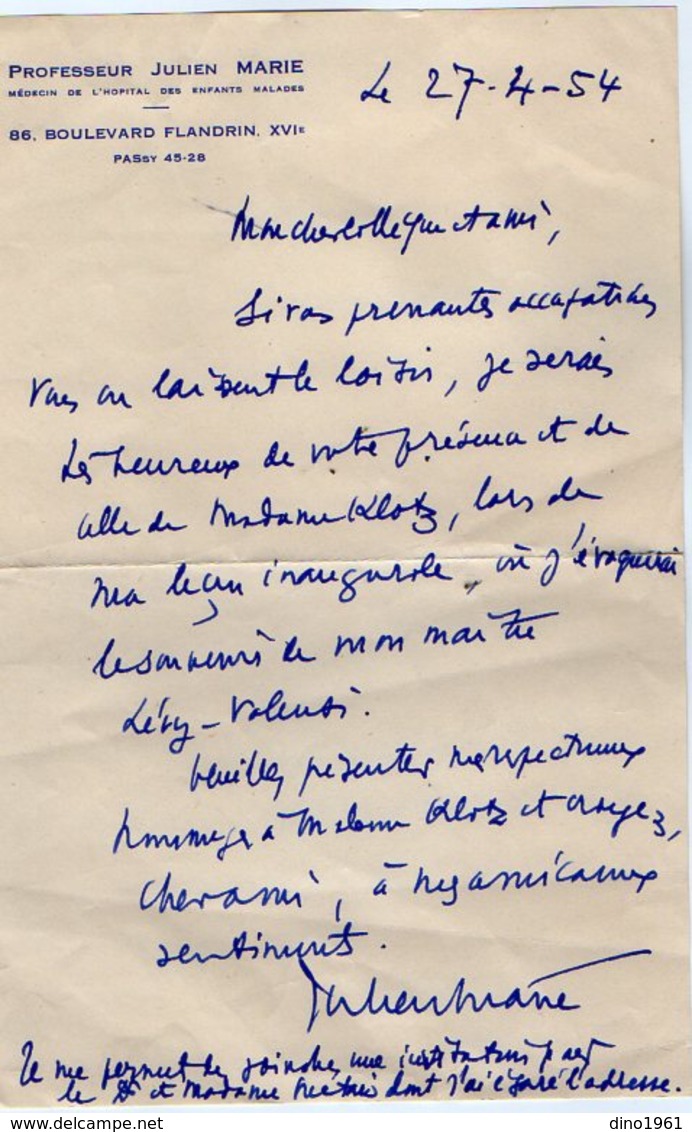 PROFESSEUR JULIEN MARIE
MÉDECIN DE L'HOPITAL DES ENFANTS MALADES
86, BOULEVARD FLANDRIN, XVIE
PASSY 45-28
Le 27-4-54
Mon cher collègue et ami,
Si vos prenantes occupations
vous en laissent le loisir, je serais
très heureux de votre présence et de
celle de Madame Klotz, lors de
ma leçon inaugurale, où j'évoquerai
le souvenir de mon maître
Lévy-Valensi.
Veuillez présenter mes respectueux
hommages à Madame Klotz et croyez,
cher ami, à mes amicaux
sentiments.
Julien Marie
Je me permets de joindre une invitation pour
le Dr et Madame dont j'ai égaré l'adresse.
dino1961